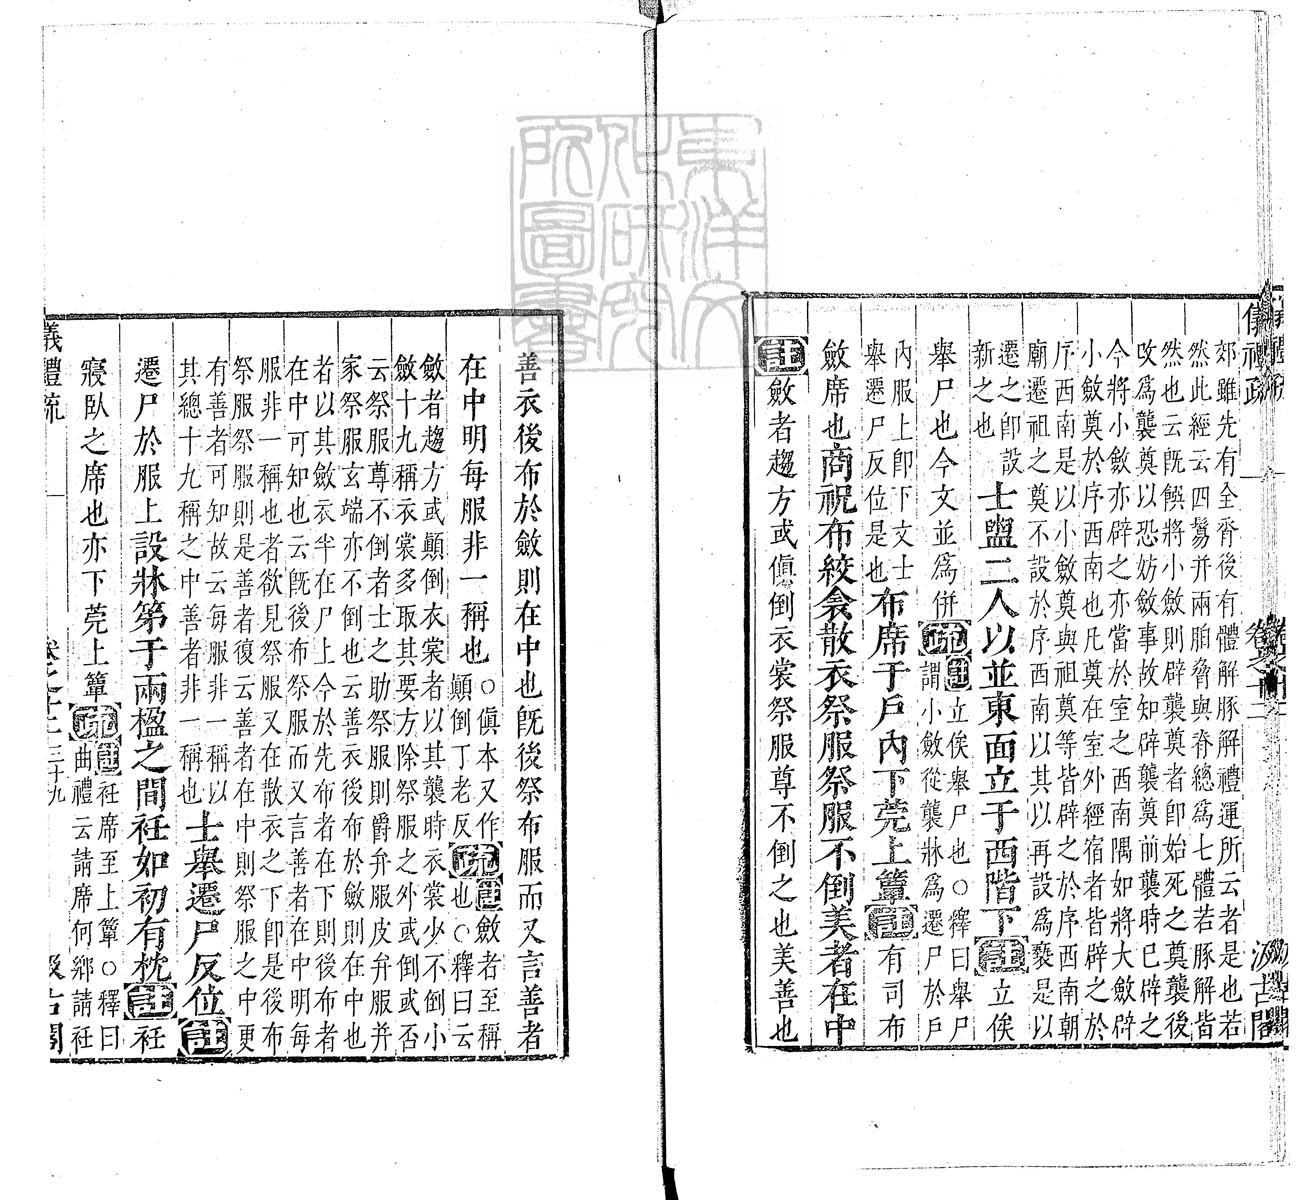 儀禮疏 卷之十二 汲古閣
郊雖先有全脀後有體解豚解禮運所云者是也若
然此經云四鬄并兩胉脅與脊總爲七體若豚解皆
然也云旣餕將小斂則辟襲奠者卽始死之奠襲後
改爲襲奠以恐妨斂事故知辟襲奠前襲時已辟之
今將小斂亦辟之亦當於室之西南隅如將大斂辟
小斂奠於序西南也凡奠在室外經宿者皆辟之於
序西南是以小斂奠與祖奠等皆辟之於序西南朝
廟遷祖之奠不設於序西南以其以再設爲褻是以
遷之卽設
新之也
士盥二人以並東面立于西階下註立俟
舉尸也今文並爲併疏註立俟舉尸也○釋曰舉尸
謂小斂從襲牀爲遷尸於戶
內服上卽下文士
舉遷尸反位是也
布席于戶內下莞上簟註有司布
斂席也商祝布絞衾散衣祭服祭服不倒美者在中
註斂者趨方或傎倒衣裳祭服尊不倒之也美善也
善衣後布於斂則在中也旣後祭布服而又言善者
在中明每服非一稱也○傎本又作
顛倒丁老反疏註斂者至稱
也○釋曰云
斂者趨方或顛倒衣裳者以其襲時衣裳少不倒小
斂十九稱衣裳多取其要方除祭服之外或倒或否
云祭服尊不倒者士之助祭服則爵弁服皮弁服并
家祭服玄端亦不倒也云善衣後布於斂則在中也
者以其斂衣半在尸上今於先布者在下則後布者
在中可知也云旣後布祭服而又言善者在中明每
服非一稱也者欲見祭服又在散衣之下卽是後布
祭服祭服則是善者復云善者在中則祭服之中更
有善者可知故云每服非一稱以
其總十九稱之中善者非一稱也
士舉遷尸反位註
遷尸於服上設牀笫于兩楹之間衽如初有枕註衽
寢臥之席也亦下莞上簟疏註衽席至上簟○釋曰
曲禮云請席何鄉請衽
義禮疏 卷之十二 三十九 汲古閣